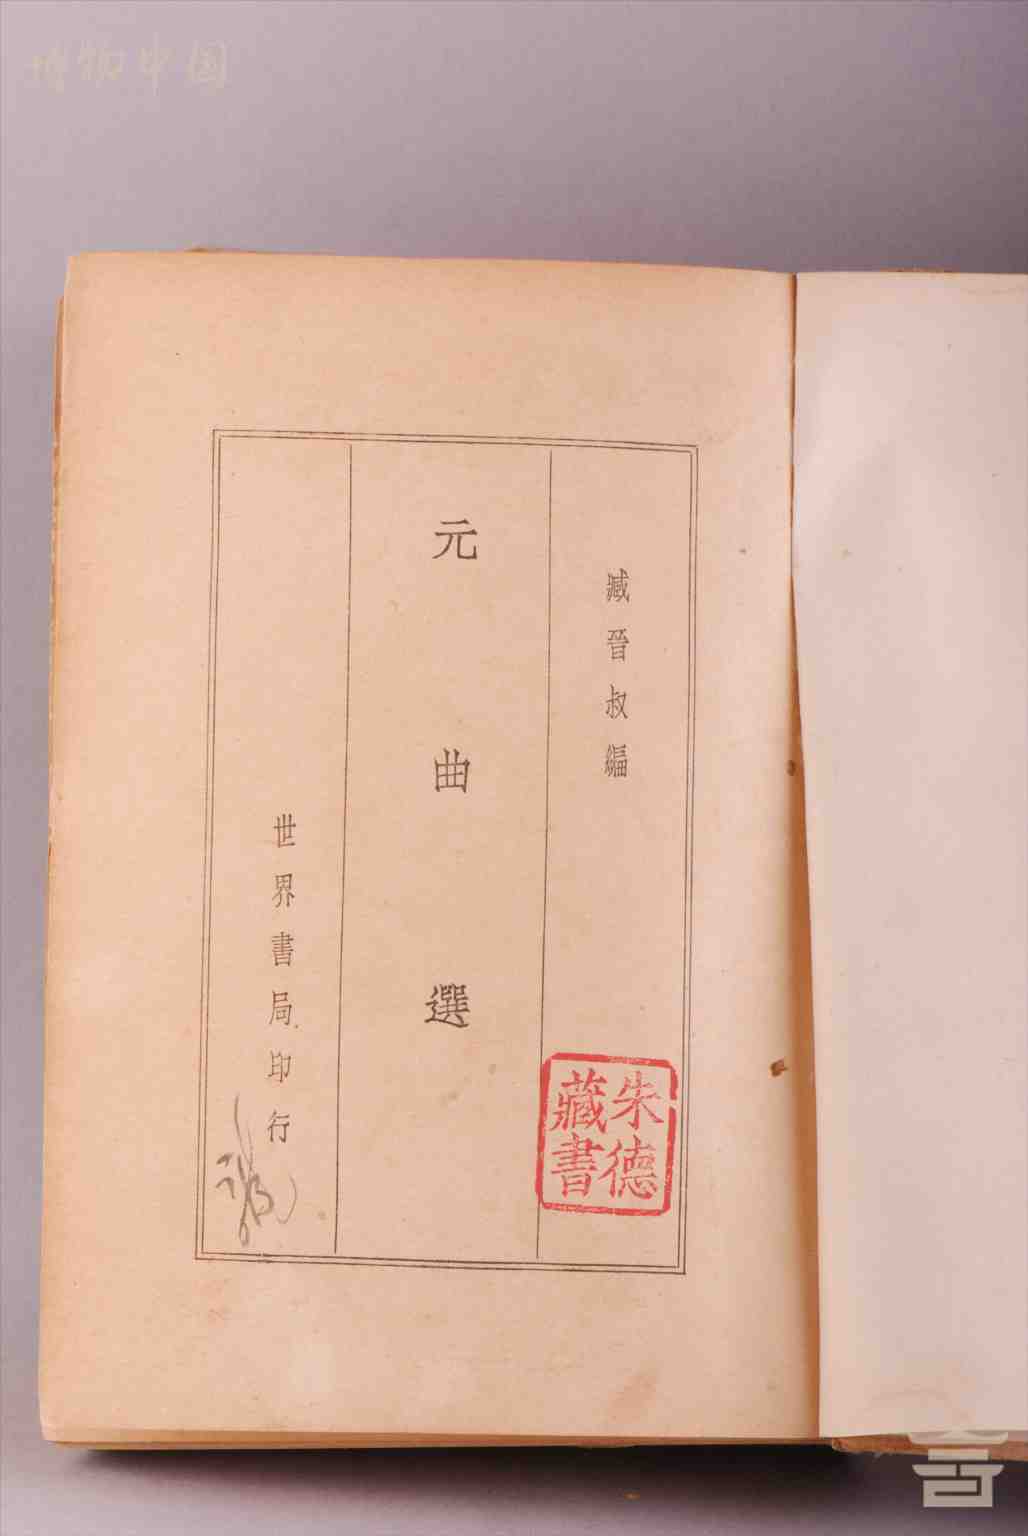 博物中国
臧晉叔編
元曲選
世界書局印行
朱德
藏書